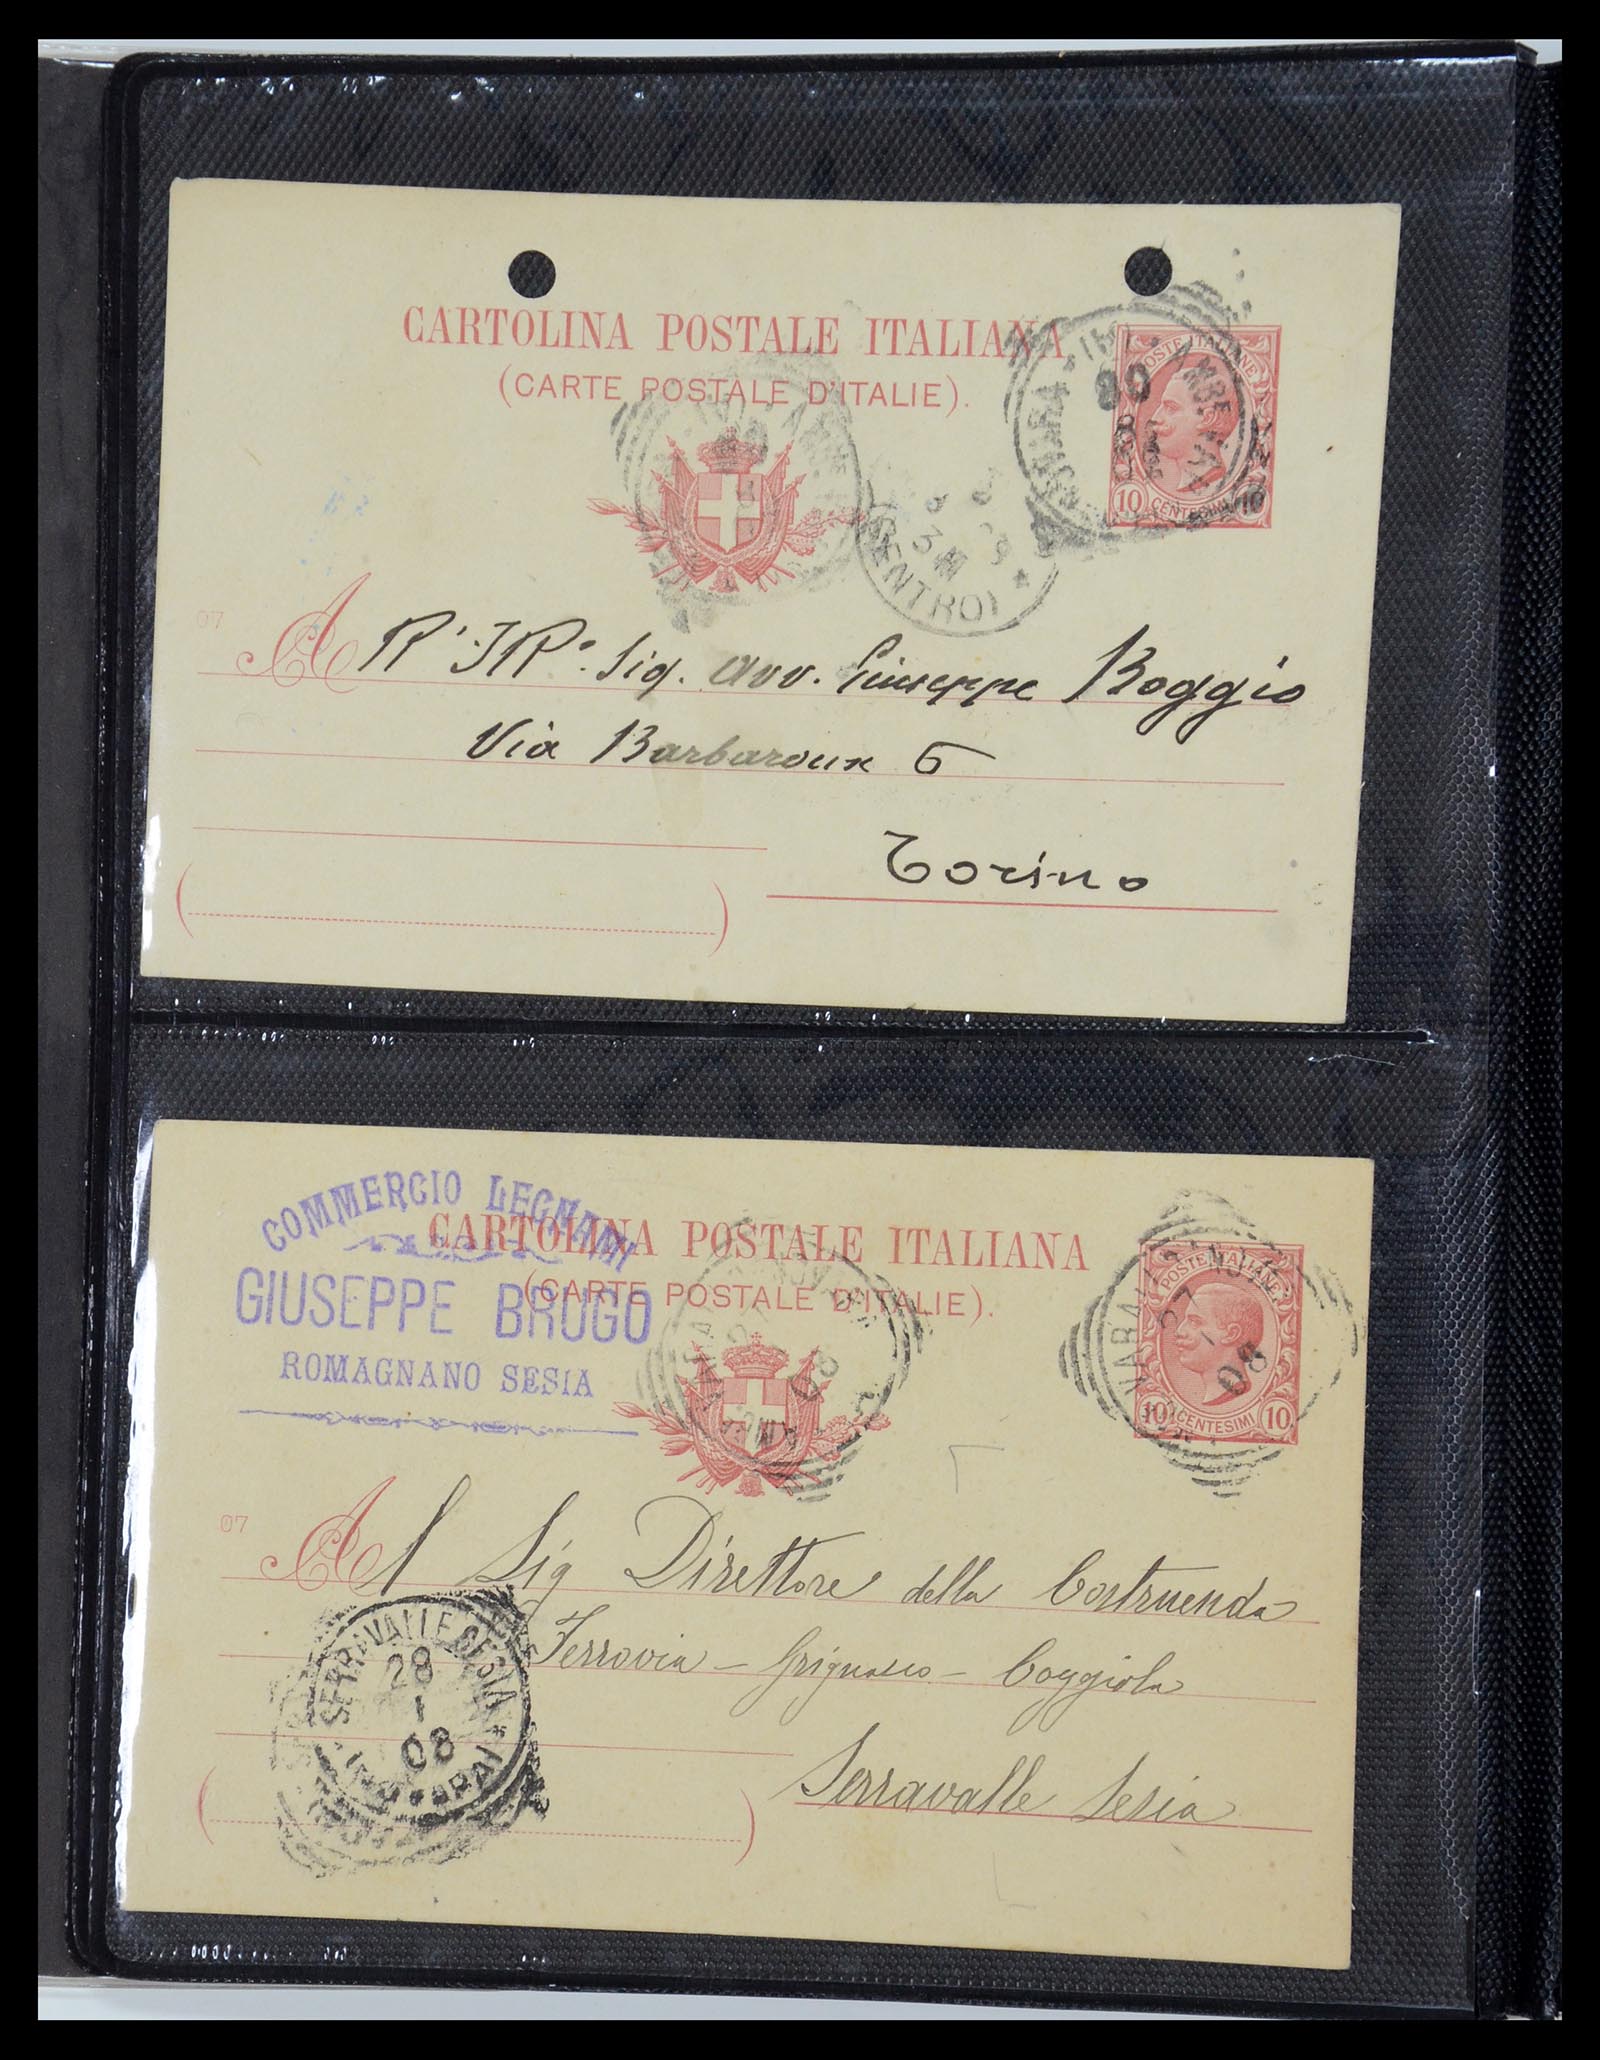 CARTOLINA POSTALE ITALIANA
(CARTE POSTALE D'ITALIE).
POSTE ITALIANE
10 CENTESIMI 10
08
(CENTRO)
07
A
Sig. Avv. Giuseppe Boggio
Via Barbaroux 6
Torino
COMMERCIO LEGNAMI
GIUSEPPE BRUGO
ROMAGNANO SESIA
CARTOLINA POSTALE ITALIANA
(CARTE POSTALE D'ITALIE).
POSTE ITALIANE
10 CENTESIMI 10
27
1
08
07
Al Sig Direttore della Costruenda
Ferrovia - Grignasco - Coggiola
Serravalle Sesia
SERRAVALLE SESIA
28
1
08
(NOVARA)